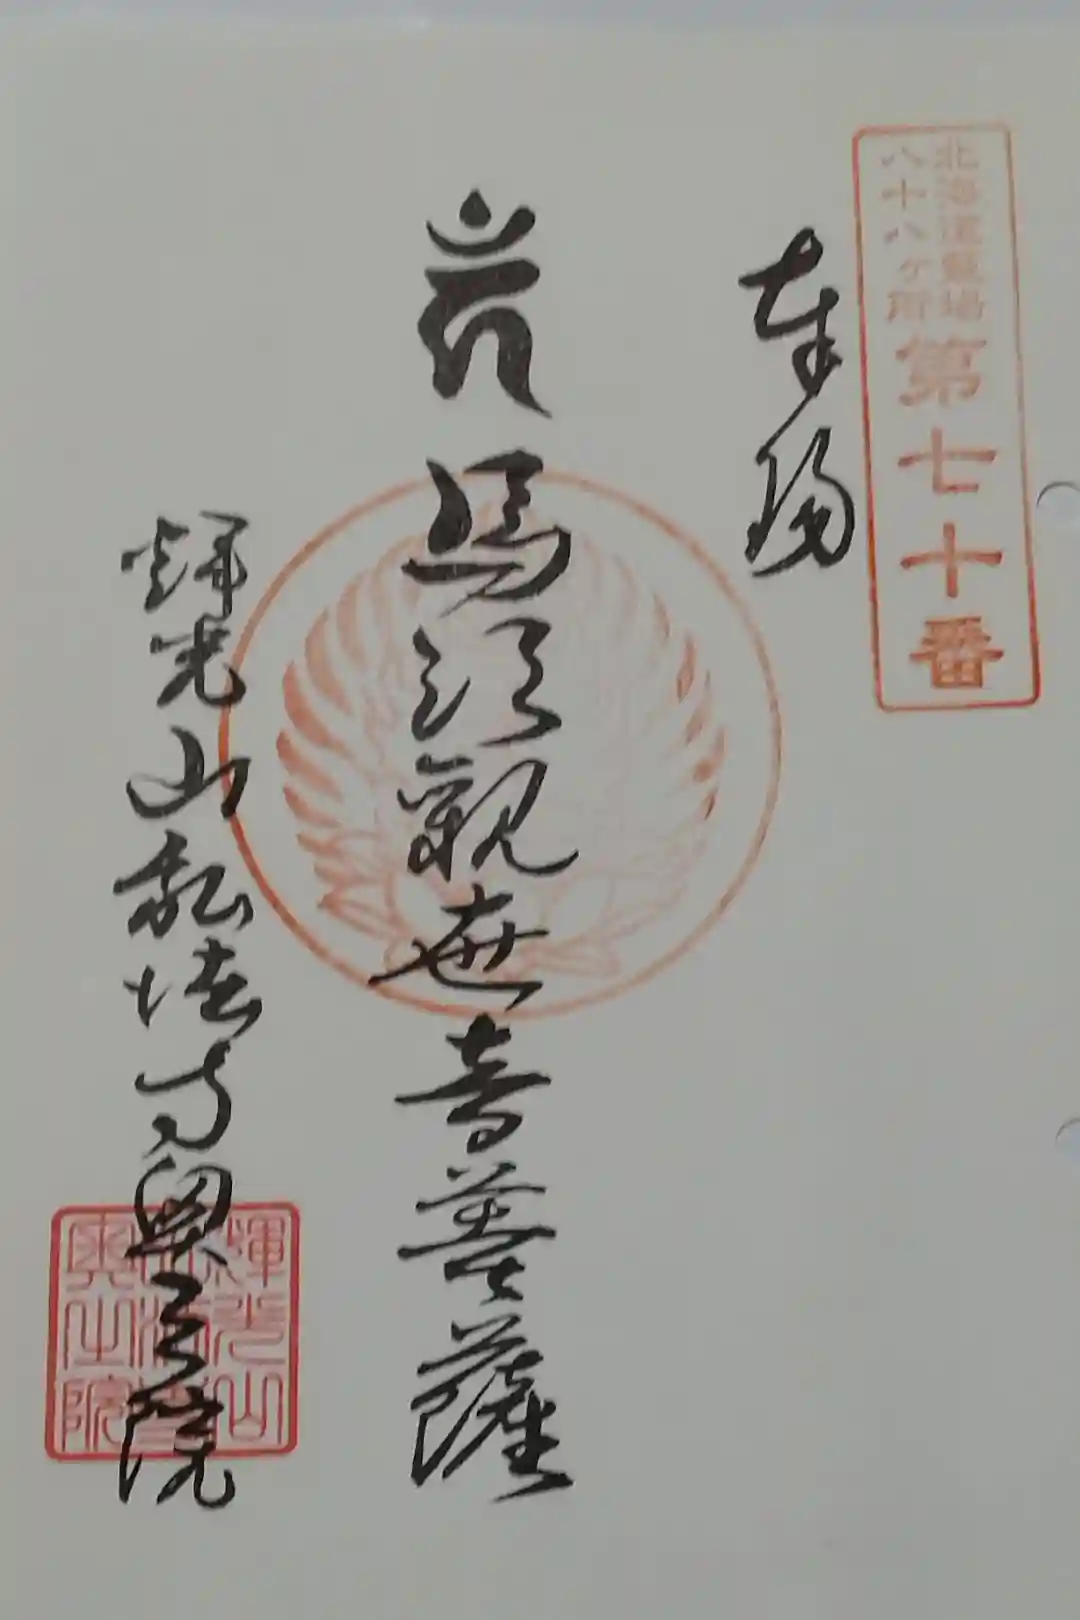 北海道霊場
八十八ヶ所
第七十番
奉拝
馬頭観世音菩薩
輝光山弘法寺奥之院
輝光山
弘法寺
奥之院